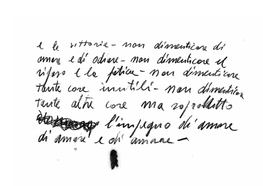 e le vittorie - non dimenticare di
amare e di odiare - non dimenticare il
riposo e la fatica - non dimenticare
tante cose inutili - non dimenticare
tante altre cose ma soprattutto
l'impegno di amare
di amare e di amare -